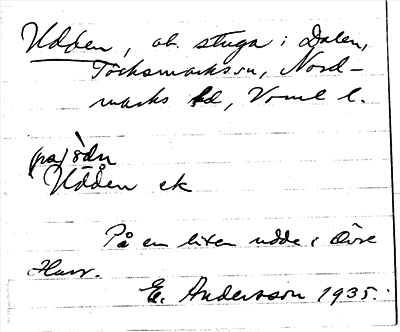 Udden, ob. stuga i Dalen,
Töcksmarks sn, Nord-
marks hd, Vrml l.
(på) ùdn
Udden ek
På en liten udde i Övre
Herr.
E. Andersson 1935.